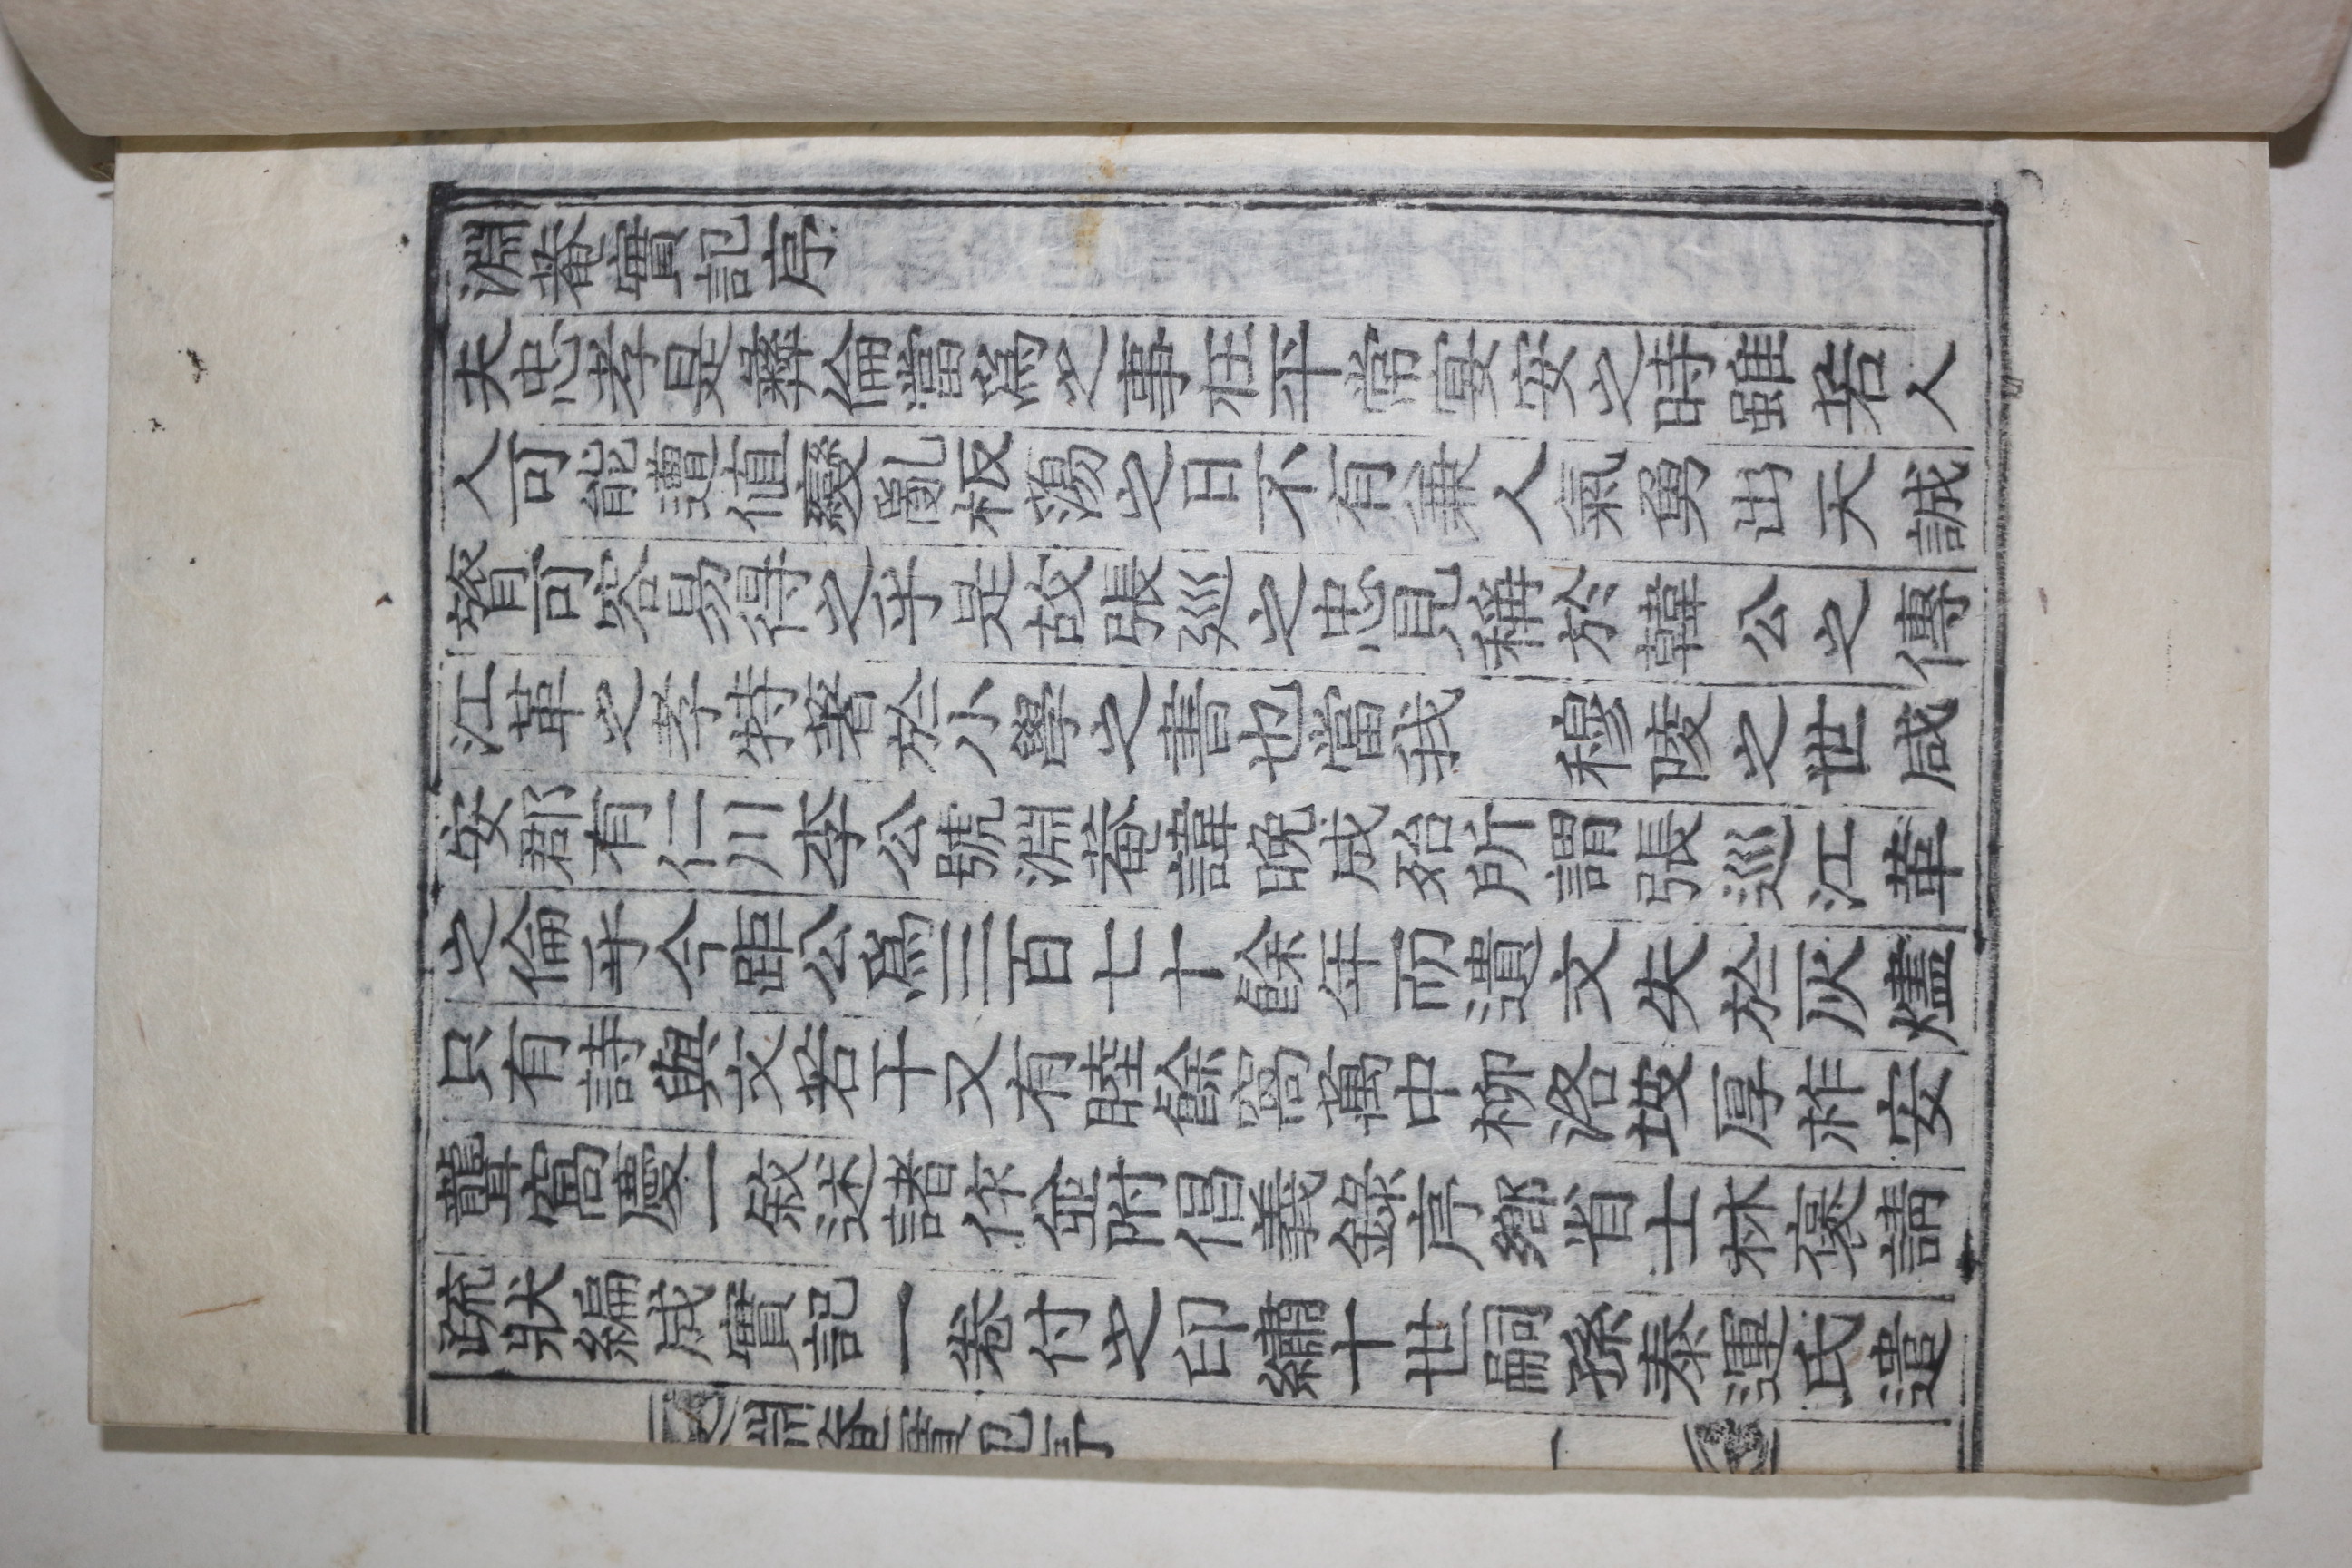 淵菴實記序
夫忠孝是彝倫當爲之事在平常宴安之時雖若人
人可能遭値變亂板蕩之日不有兼人氣勇出天誠
膂可容易得之乎是故張廵之忠見稱於韓公之傳
江革之孝特著於小學之書也當我 穆陵之世咸
安郡有仁川李公號淵菴諱晚成殆所謂張巡江革
之倫乎今距公爲三百七十餘年而遺文失於灰燼
只有詩與文若干又有睦餘窩萬中柳洛坡厚祚安
聾窩慶一敘述諸作並附倡義錄序鄕省士林褒請
疏狀編成實記一卷付之印繡十世嗣孫泰運氏遣
淵菴實記序
一